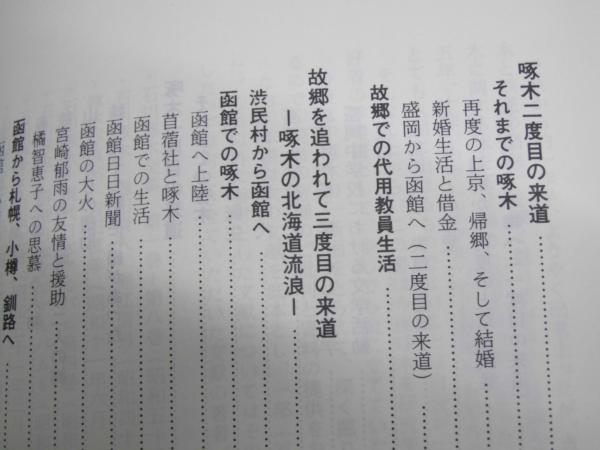 啄木二度目の来道
それまでの啄木
再度の上京、帰郷、そして結婚
新婚生活と借金
盛岡から函館へ（二度目の来道）
故郷での代用教員生活
故郷を追われて三度目の来道
―啄木の北海道流浪―
渋民村から函館へ
函館での啄木
函館へ上陸
苜蓿社と啄木
函館での生活
函館日日新聞
函館の大火
宮崎郁雨の友情と援助
橘智恵子への思慕
函館から札幌、小樽、釧路へ